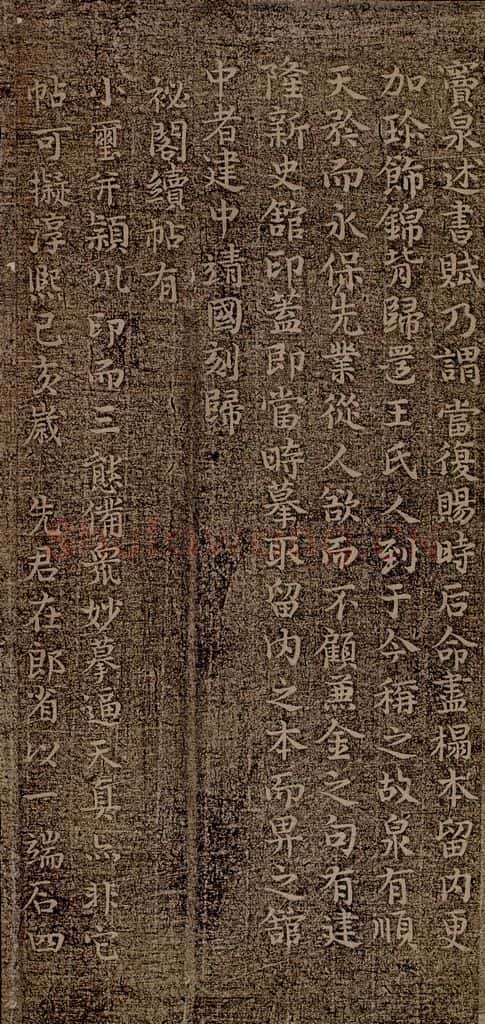 竇泉述書賦乃謂當復賜時后命盡榻本留內更
加珎飾錦背歸還王氏人到于今稱之故泉有順
天矜而永保先業從人欲而不顧蒹金之句有建
隆新史舘印蓋即當時摹取留內之本而畀之舘
中者建中靖國刻歸
祕閣續帖有
小璽并潁川印而三態備衆妙摹逼天真亦非它
帖可擬淳熙己亥歲 先君在郎省以一端石四